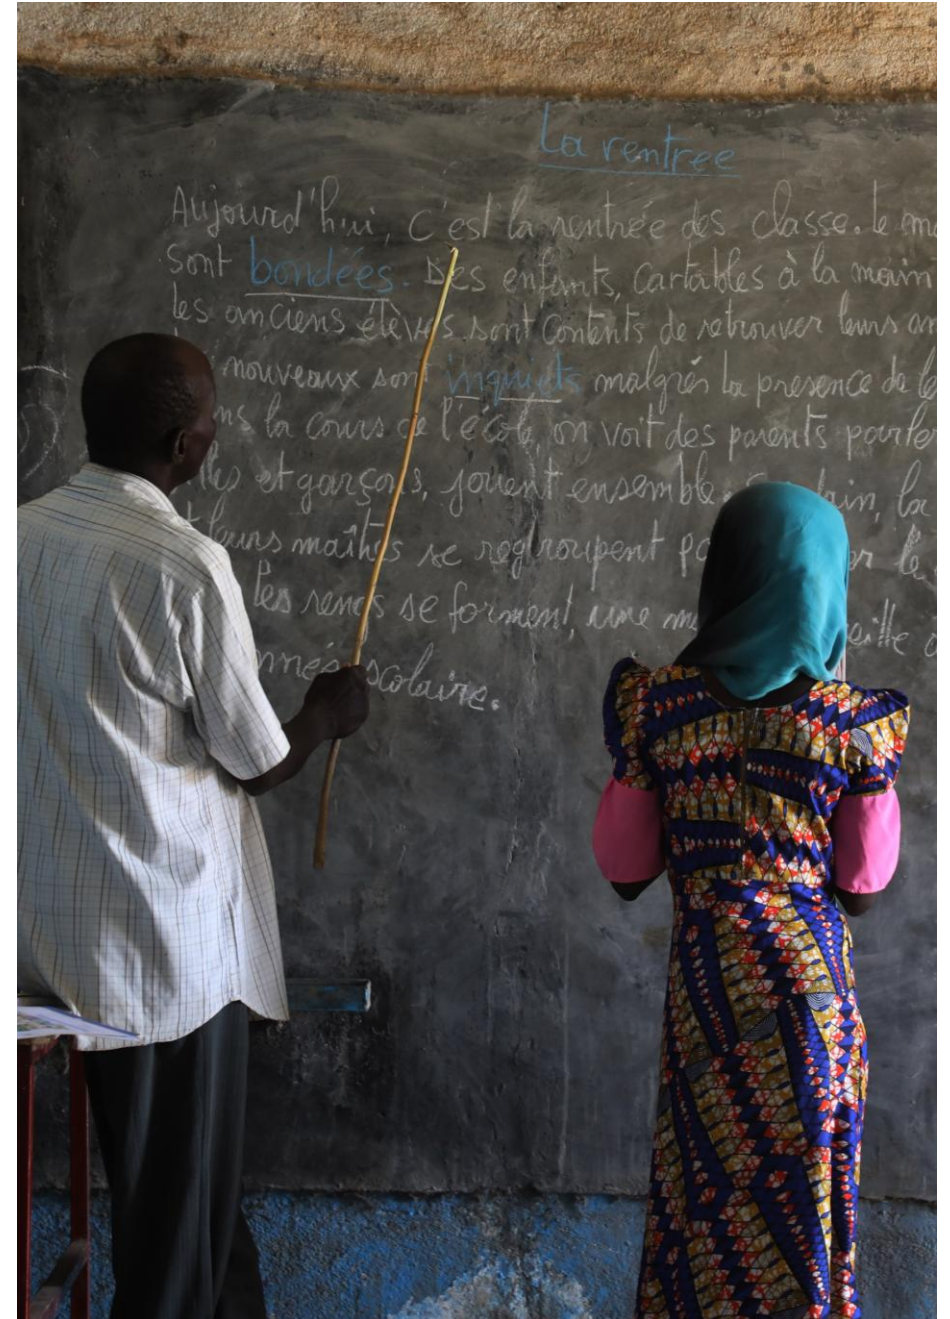 La rentree
Aujourd'hui, C'est la rentrée des classe. le
sont bondées. Des enfants, Cartables à la main
les anciens élèves sont Contents de retrouver leurs
nouveaux sont inquiets malgrés la presence de
la cours de l'école, on voit des parents parler
et garçons, jouent ensemble. la
leurs maîtres se regroupent le
les rengs se forment, une
scolaire.